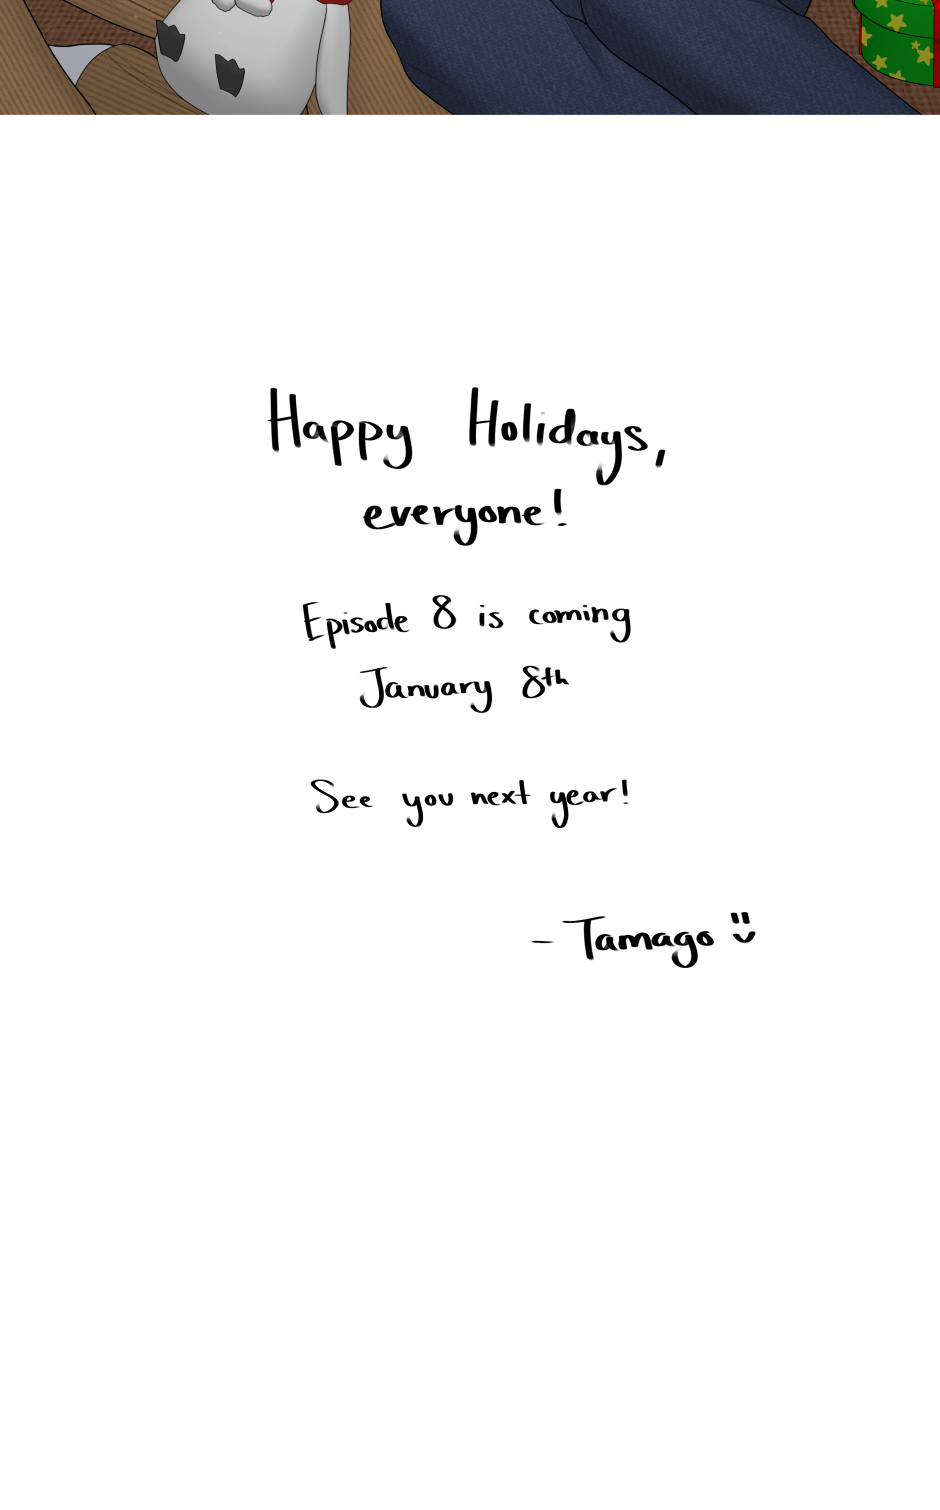 Happy Holidays,
everyone!
Episode 8 is coming
January 8th
See you next year!
- Tamago